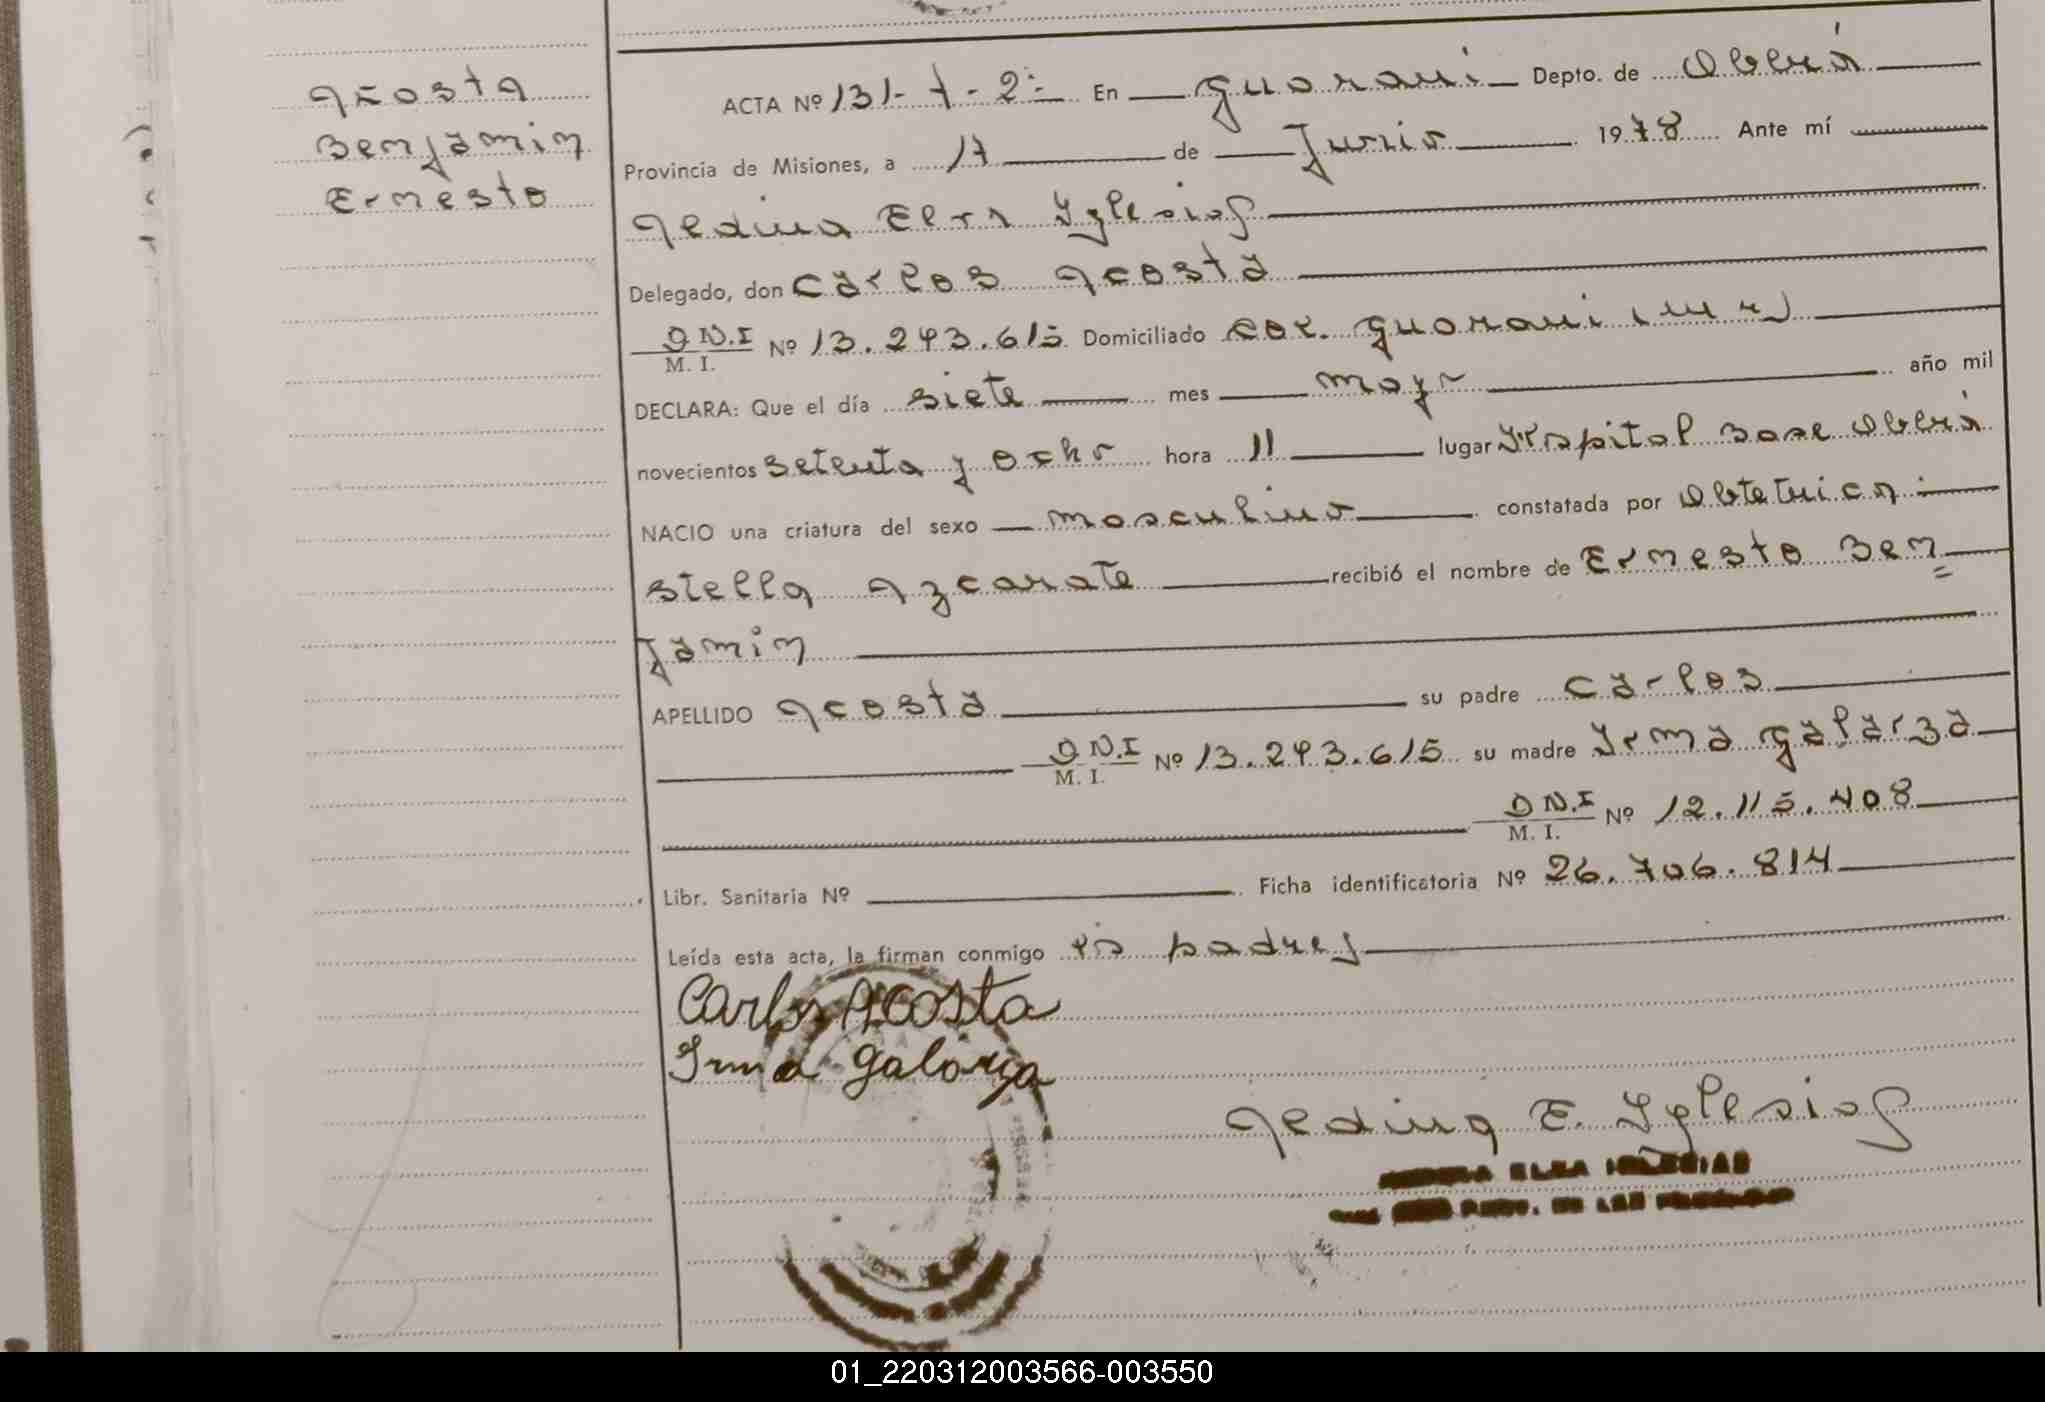 Acosta
Benjamin
Ernesto
ACTA Nº 131-7-2- En Guarani Depto. de Oberá
Provincia de Misiones, a 17 de Junio 1978 Ante mí
Medina Elsa Yglesias
Delegado, don Carlos Acosta
D N.I
M. I. Nº 13.243.615 Domiciliado Col. Guarani
DECLARA: Que el día siete mes mayo año mil
novecientos setenta y ocho hora 11 lugar Hospital Base Oberá
NACIO una criatura del sexo masculino constatada por Obtetrica
Stella Azcarate recibió el nombre de Ernesto Ben
jamin
APELLIDO Acosta su padre Carlos
D N.I
M. I. Nº 13.243.615 su madre Irma Galarza
D N.I
M. I. Nº 12.115.408
Libr. Sanitaria Nº Ficha identificatoria Nº 26.706.814
Leída esta acta, la firman conmigo padres
Carlos Acosta
Irma Galarza
E. Yglesias
ELSA IGLESIAS
01_220312003566-003550